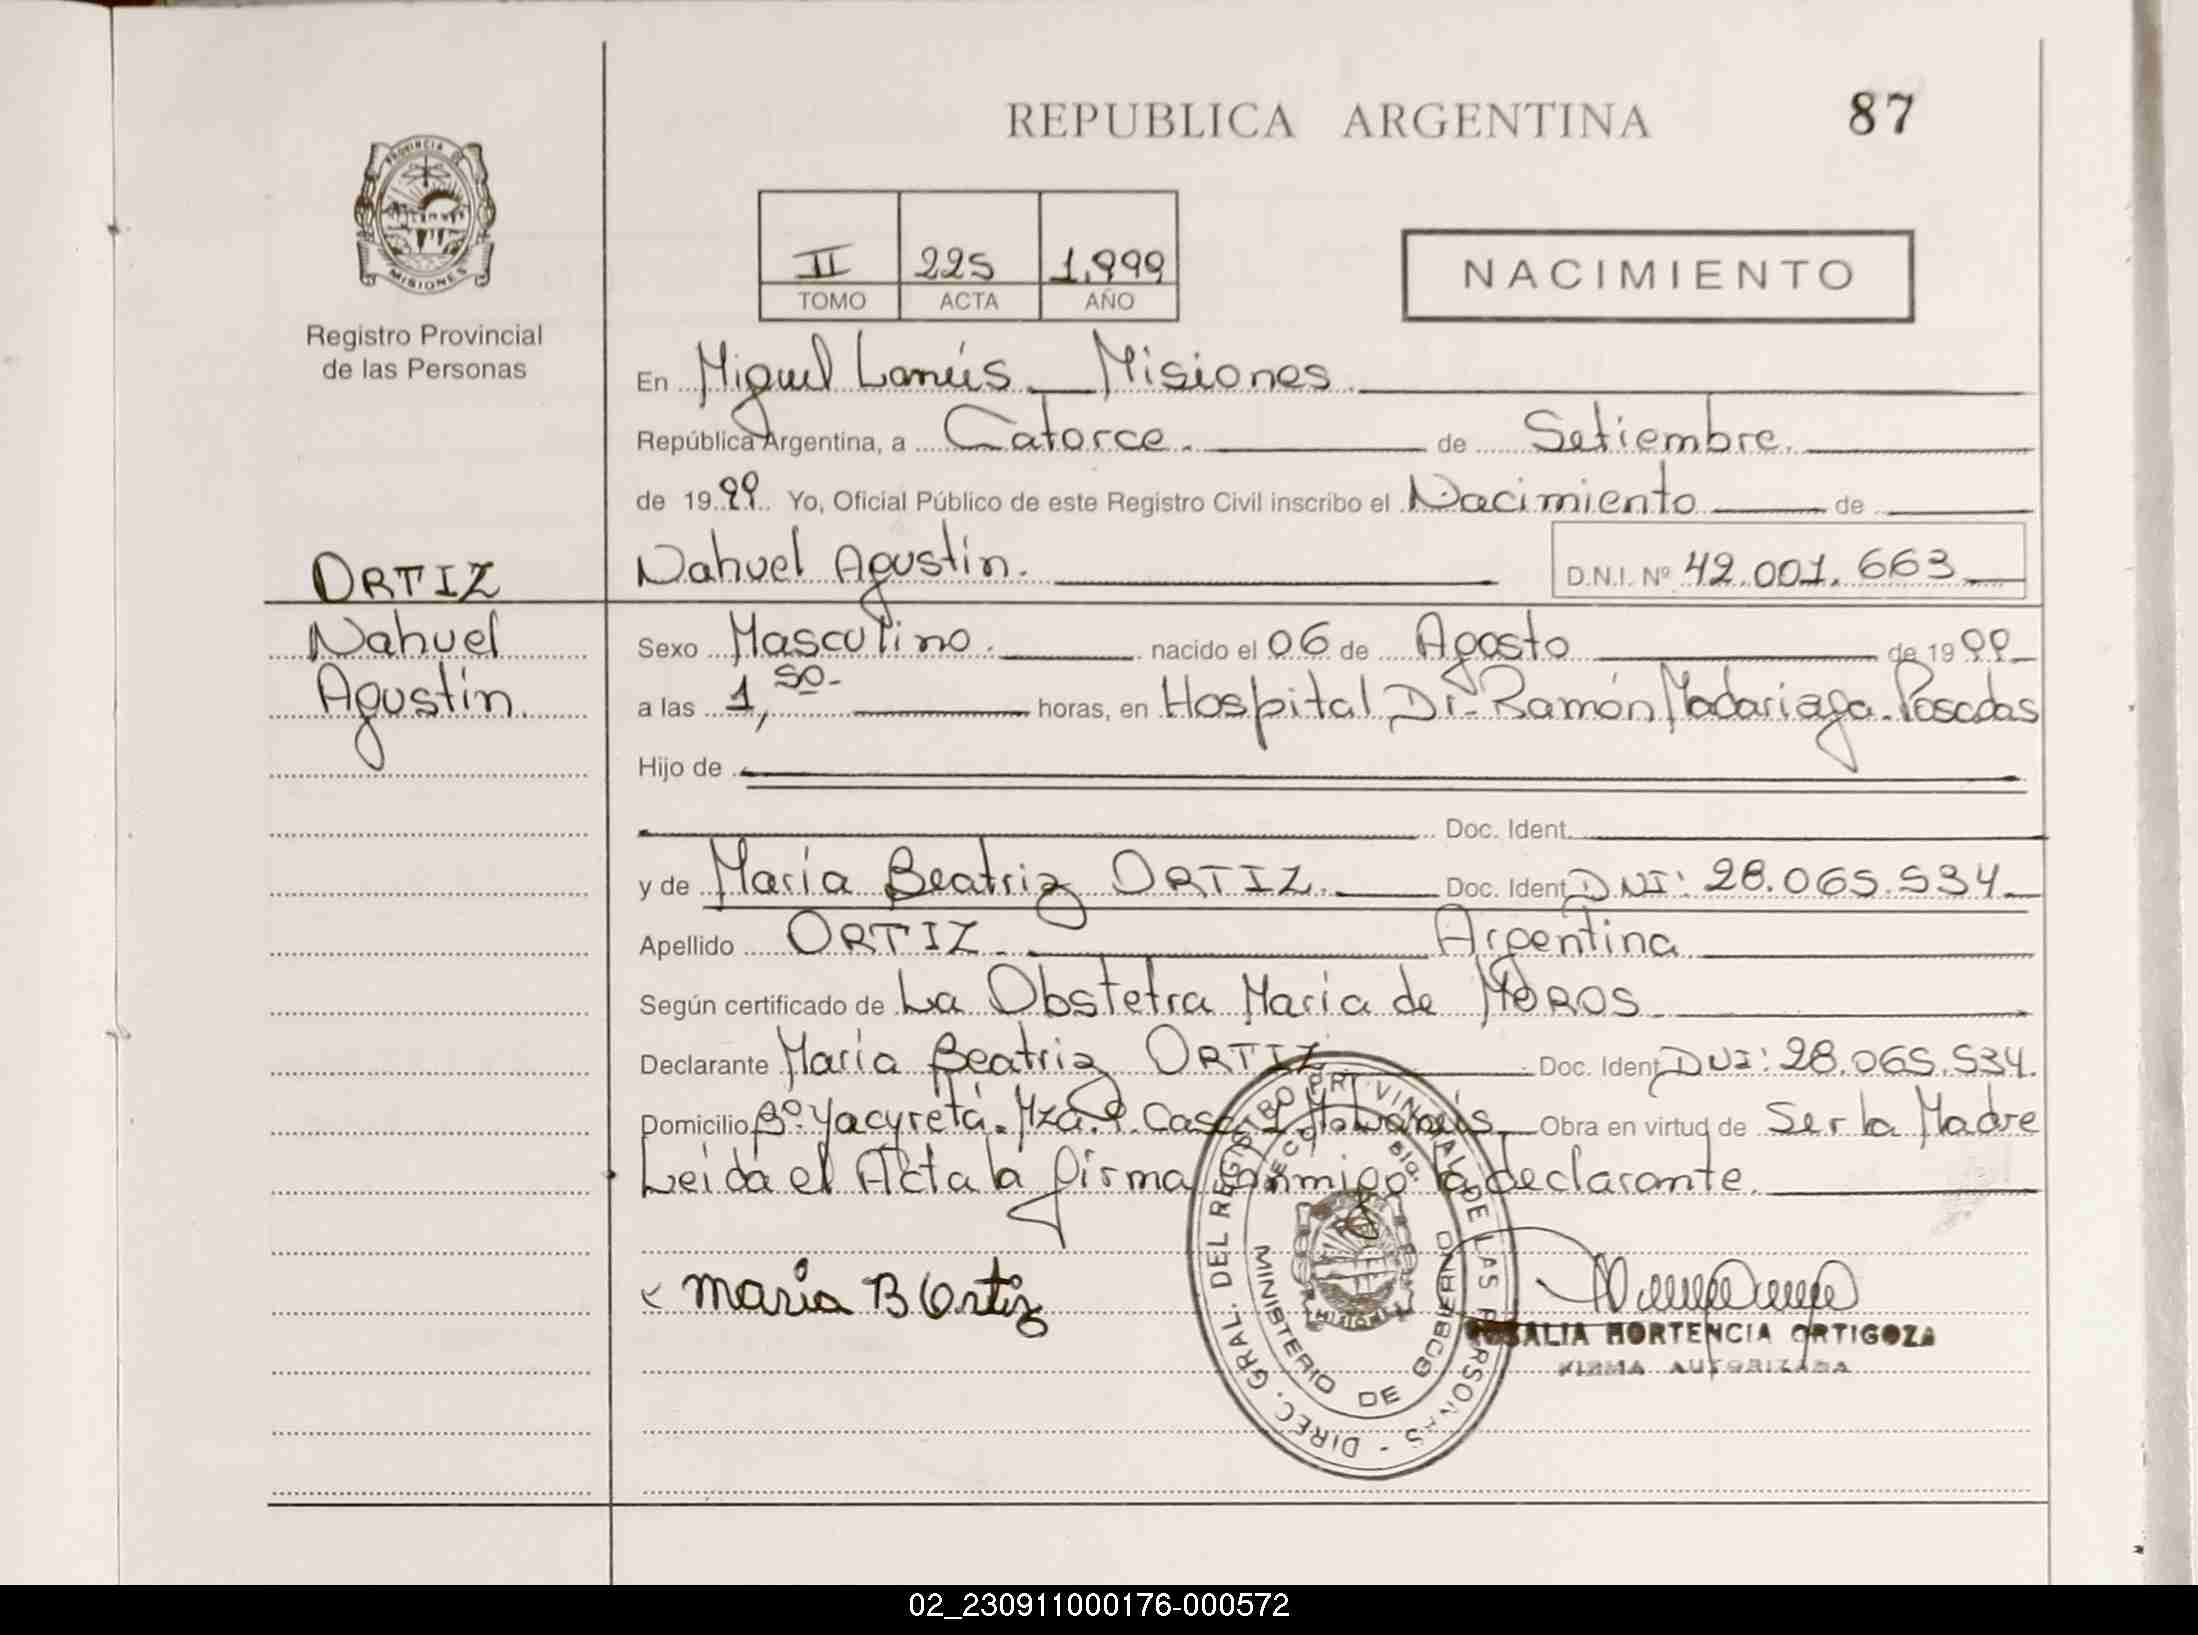 REPUBLICA ARGENTINA
87
PROVINCIA DE
MISIONES
Registro Provincial
de las Personas
II 225 1.999
TOMO ACTA AÑO
NACIMIENTO
En Miguel Lanús. Misiones.
República Argentina, a Catorce. de Setiembre.
de 1999. Yo, Oficial Público de este Registro Civil inscribo el Nacimiento de
Nahuel Agustín. D.N.I. Nº 42.001.663
ORTIZ
Nahuel
Agustín.
Sexo Masculino. nacido el 06 de Agosto de 1999
a las 1,50- horas, en Hospital Dr. Ramón Madariaga. Posadas
Hijo de
Doc. Ident.
y de María Beatriz ORTIZ. Doc. Ident. DNI: 28.065.534.
Apellido ORTIZ. Argentina
Según certificado de La Obstetra María de MOROS.
Declarante María Beatriz ORTIZ Doc. Ident. DNI: 28.065.534.
Domicilio Bº. Yacyretá. Mza. Casa Obra en virtud de Ser la Madre
Leída el Acta la firma conmigo la declarante.
maria B Ortiz
DIREC. GRAL. DEL REGISTRO PROVINCIAL DE LAS PERSONAS -
MINISTERIO DE GOBIERNO
MISIONES
ROSALIA HORTENCIA ORTIGOZA
FIRMA AUTORIZADA
02_230911000176-000572